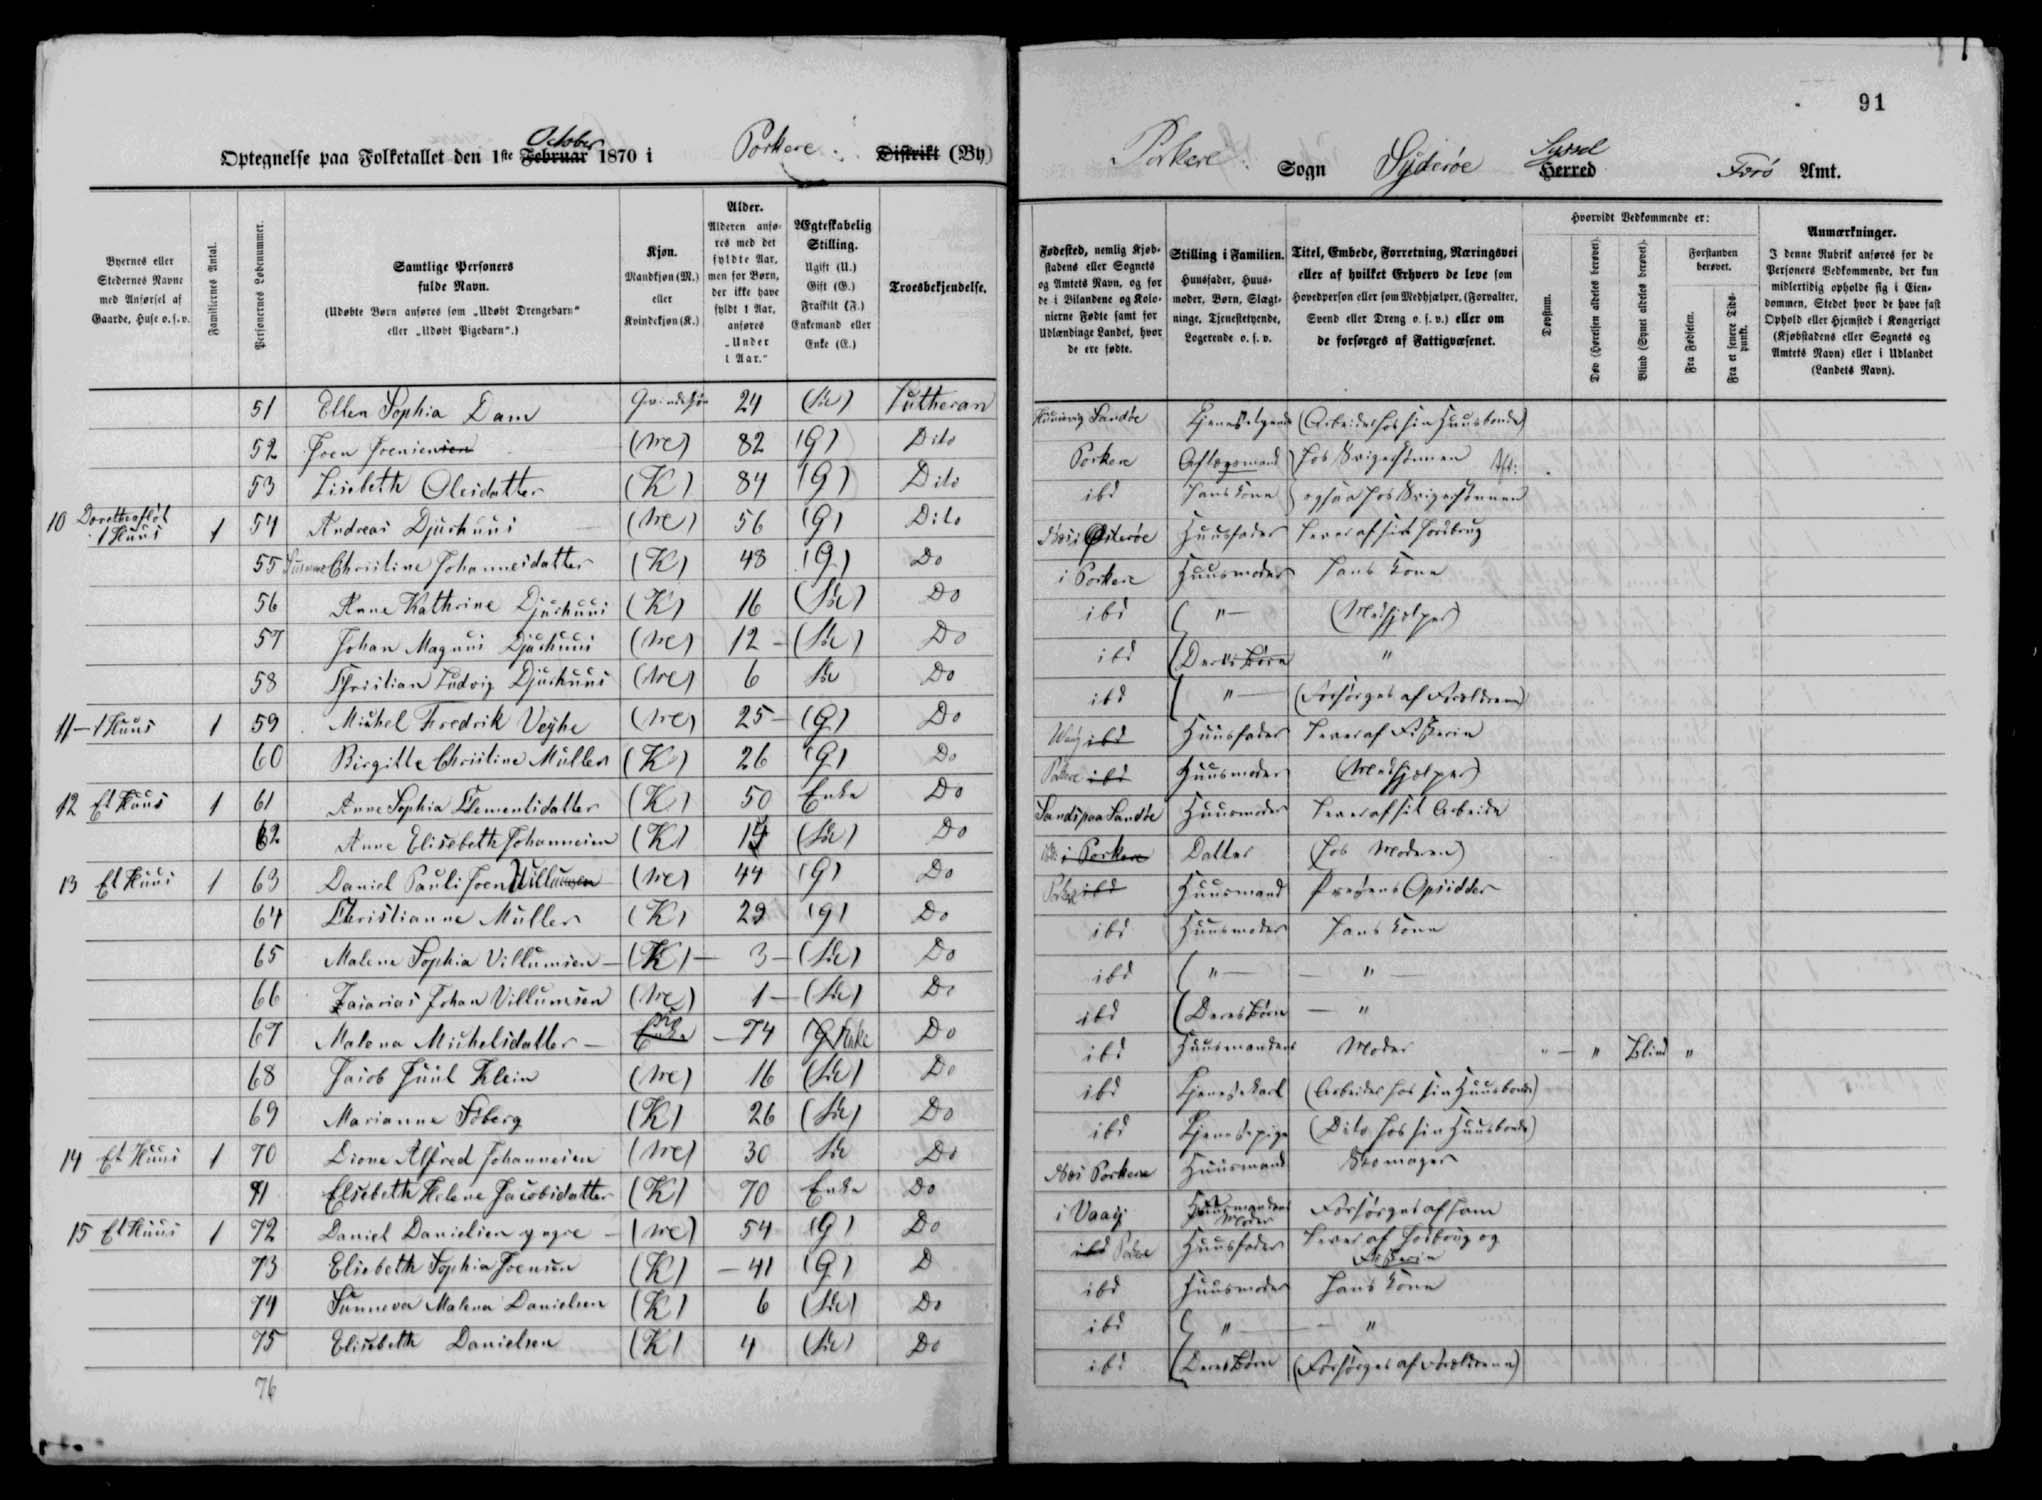 91
Optegnelse paa Folketallet den 1ste Februar October 1870 i Porkere Distrikt (By)
Porkere Sogn Syderøe Herred Syssel Færø Amt.
Byernes eller Stedernes Navne med Anførsel af Gaarde, Huse o. s. v.
Familiernes Antal.
Personernes Løbenummer.
Samtlige Personers fulde Navn.
(Udøbte Børn anføres som „Udøbt Drengebarn" eller „Udøbt Pigebarn".)
Kjøn.
Mandkjøn (M.) eller Kvindekjøn (K.)
Alder.
Alderen anføres med det fyldte Aar, men for Børn, der ikke have fyldt 1 Aar, anføres „Under 1 Aar."
Ægteskabelig Stilling.
Ugift (U.) Gift (G.) Fraskilt (F.) Enkemand eller Enke (E.)
Troesbekjendelse.
Fødested, nemlig Kjøbstadens eller Sognets og Amtets Navn, og for de i Bilandene og Kolonierne Fødte samt for Udlændinge Landet, hvor de ere fødte.
Stilling i Familien.
Huusfader, Huusmoder, Børn, Slægtninge, Tjenestetyende, Logerende o. s. v.
Titel, Embede, Forretning, Næringsvei eller af hvilket Erhverv de leve som Hovedperson eller som Medhjælper, (Forvalter, Svend eller Dreng o. s. v.) eller om de forsørges af Fattigvæsenet.
Hvorvidt Vedkommende er:
Døvstum.
Døv (Hørelsen aldeles berøvet).
Blind (Synet aldeles berøvet).
Forstanden berøvet.
Fra Fødselen.
Fra et senere Tidspunkt.
Anmærkninger.
I denne Rubrik anføres for de Personers Vedkommende, der kun midlertidig opholde sig i Eiendommen, Stedet hvor de have fast Ophold eller Hjemsted i Kongeriget (Kjøbstadens eller Sognets og Amtets Navn) eller i Udlandet (Landets Navn).
51 Ellen Sophia Dam Qvindekjøn 24 Lutheran Sandøe (Arbeider hos sin Huusbonde)
52 Joen Joensen 82 (G) Dito Porkere Aftægsmand hos Svigersønnen
53 Lisebeth Olesdatter (K) 84 (G) Dito ibd Hans Kone ogsaa hos Svigersønnen
10 1 Huus 1 54 Andreas Djurhuus 56 (G) Dito Østerøe Huusfader Lever af sit Jordbrug
55 Christine Johannesdatter (K) 48 (G) Do i Porkere Huusmoder Hans Kone
56 Anne Kathrine Djurhuus (K) 16 Do ibd ( " (Medhjælper)
57 Johan Magnus Djurhuus 12 Do ibd (Deres Børn "
58 Christian Ludvig Djurhuus 6 Do ibd ( " (Forsørges af Forældrene)
11 - 1 Huus 1 59 Michel Fredrik Vejhe 25 (G) Do ibd Huusfader Lever af Fiskerie
60 Birgitte Christine Müller (K) 26 (G) Do ibd Huusmoder (Medhjælper)
12 Et Huus 1 61 Anne Sophia Clementsdatter (K) 50 Enke Do Sands paa Sandøe Huusmoder Lever af sit Arbeide
62 Anne Elisebeth Johannesen (K) Do i Porkere Datter (hos Moderen)
13 Et Huus 1 63 Daniel Pauli Joen Villumsen 44 (G) Do Porkere ibd Huusmand Opsidder
64 Christianne Müller (K) 29 (G) Do ibd Huusmoder Hans Kone
65 Malene Sophia Villumsen (K) 3 Do ibd ( " "
66 Zacarias Johan Villumsen 1 Do ibd (Deres Børn "
67 Malena Michelsdatter 74 Enke Do ibd Huusmandens Moder " Blind "
68 Jacob Juul Klein 16 Do ibd Tjenestekarl (Arbeider hos sin Huusbonde)
69 Marianne Soberg (K) 26 Do ibd Tjenestepige (Dito hos sin Huusbonde)
14 Et Huus 1 70 Dione Alfred Johannesen 30 Do Porkere Huusmand Skomager
71 Elsebeth Helene Jacobsdatter (K) 70 Enke Do i Vaag Huusmandens Moder Forsørges af ham
15 Et Huus 1 72 Daniel Danielsen yngre 54 (G) Do ibd Huusfader Lever af Jordbrug og Fiskerie
73 Elisebeth Sophia Joensen (K) 41 (G) D ibd Huusmoder Hans Kone
74 Sunneva Malena Danielsen (K) 6 Do ibd ( " "
75 Elisebeth Danielsen (K) 4 Do ibd (Deres Børn (Forsørges af Forældrene)
76